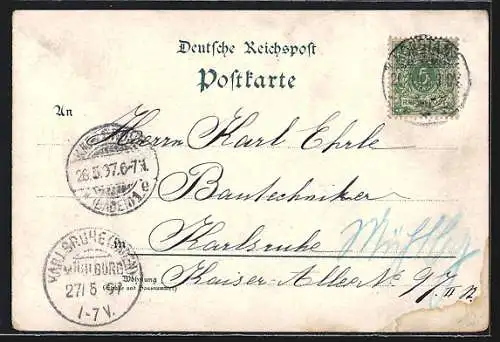 Deutsche Reichspost
Postkarte
An
Herrn Karl Ehrle
Bautechniker
in Karlsruhe Mühlbg
Wohnung Kaiser-Allee No 97. II
(Straße und Hausnummer)
5
26.5.97.6-7N.
(BADEN)
1e
KARLSRUHE (BADEN)
MÜHLBURG
27/5 97
1-7V.